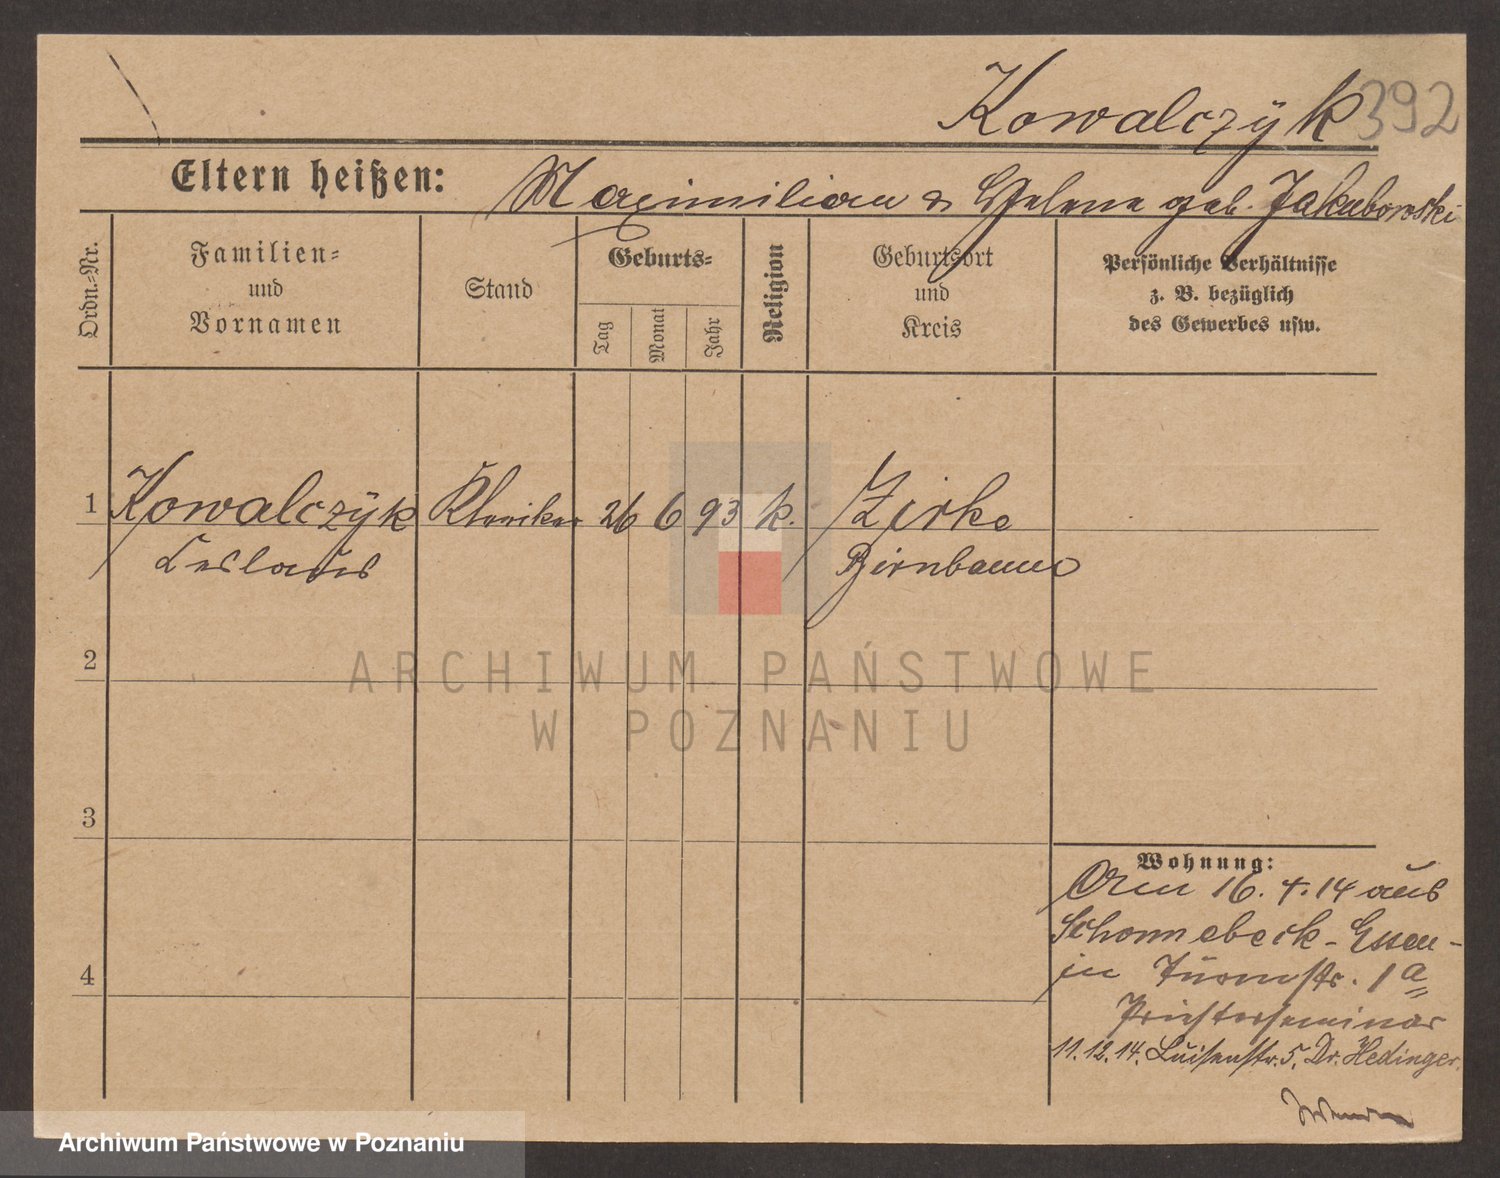 Kowalczÿk 392
Eltern heißen: Maximilian & Helene geb. Jakubowski
Ordn.-Nr.
Familien-
und
Vornamen
Stand
Geburts-
Tag
Monat
Jahr
Religion
Geburtsort
und
Kreis
Persönliche Verhältnisse
z. B. bezüglich
des Gewerbes usw.
1 Kowalczÿk Kleriker 26 6 93 k. Zirke
Leslaus Birnbaum
2
ARCHIWUM PAŃSTWOWE
W POZNANIU
3
Wohnung:
Am 16. 4. 14 aus
Schonnebeck-Essen-
in Turmstr. 1a
Priesterseminar
4
11. 12. 14. Luisenstr. 5, Dr. Hedinger.
Archiwum Państwowe w Poznaniu